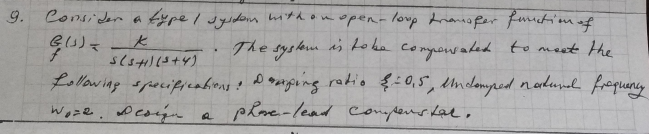 9. Consider a type 1 system with an open-loop transfer function of
G_f(s) = K / s(s+1)(s+4) . The system is to be compensated to meet the
following specifications: Damping ratio ξ = 0,5, Undamped natural frequency
W₀=2. Design a phase-lead compensator.